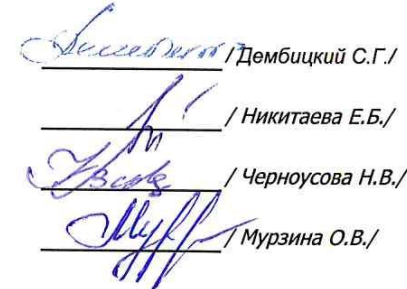 / Дембицкий С.Г./
/ Никитаева Е.Б./
/ Черноусова Н.В./
/ Мурзина О.В./